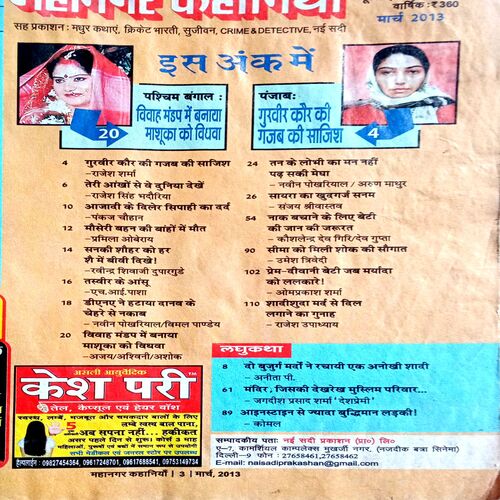 महानगर कहानियाँ
वार्षिक : ₹360
मार्च 2013
सह प्रकाशन : मधुर कथाएं, क्रिकेट भारती, सुजीवन, CRIME & DETECTIVE, नई सदी
इस अंक में
पश्चिम बंगाल :
विवाह मंडप में बनाया
माशूका को विधवा
20
पंजाब:
गुरवीर कौर की
गजब की साजिश
4
4 गुरवीर कौर की गजब की साजिश
–राजेश शर्मा
6 तेरी आंखों से ये दुनिया देखें
–राजेश सिंह भदौरिया
10 आजादी के दिलेर सिपाही का दर्द
–पंकज चौहान
12 मौसेरी बहन की बांहों में मौत
–प्रमिला ओबेराय
14 सनकी शौहर को हर
शै में बीवी दिखे!
–रवीन्द्र शिवाजी दुपारगुडे
16 तस्वीर के आंसू
–एच.आई.पाशा
18 डीएनए ने हटाया दानव के
चेहरे से नकाब
–नवीन पोखरियाल/विमल पाण्डेय
20 विवाह मंडप में बनाया
माशूका को विधवा
–अजय/अश्विनी/अशोक
24 तन के लोभी का मन नहीं
पढ़ सकी मेघा
–नवीन पोखरियाल / अरुण माथुर
26 सायरा का खुदगर्ज सनम
–संजय श्रीवास्तव
54 नाक बचाने के लिए बेटी
की जान की जरूरत
–कौशलेन्द्र देव गिरि/देव गुप्ता
90 सीमा को मिली शोक की सौगात
–उमेश त्रिवेदी
102 प्रेम-दीवानी बेटी जब मर्यादा
को ललकारे!
–ओमप्रकाश शर्मा
110 शादीशुदा मर्द से दिल
लगाने का गुनाह
–राजेश उपाध्याय
लघुकथा
8 दो बुजुर्ग मर्दों ने रचायी एक अनोखी शादी
–अनीता पी.
61 मंदिर, जिसकी देखरेख मुस्लिम परिवार...
–जगदीश प्रसाद शर्मा 'देशप्रेमी'
89 आइनस्टाइन से ज्यादा बुद्धिमान लड़की!
–कोमल
असली आयुर्वेदिक
केश परी
तेल, कैप्सूल एवं हेयर वॉश
स्वस्थ, लम्बे, मजबूत और चमकदार बालों के लिए
लम्बे स्वस्थ बाल पाना,
–अब सपना नहीं... हकीकत
असर पहले दिन से शुरू। कोर्स 3 माह
हेल्पलाईन : 09827454364, 09617248701, 09617688541, 09753149734
सम्पादकीय पताः नई सदी प्रकाशन (प्रा०) लि०
ए–, कामर्शियल काम्पलेक्स मुखर्जी नगर, (नजदीक बत्रा सिनेमा)
दिल्ली–9 फोन : 27658461,27658462
E-mail: naisadiprakashan@gmail.com
महानगर कहानियाँ | 3 | मार्च, 2013